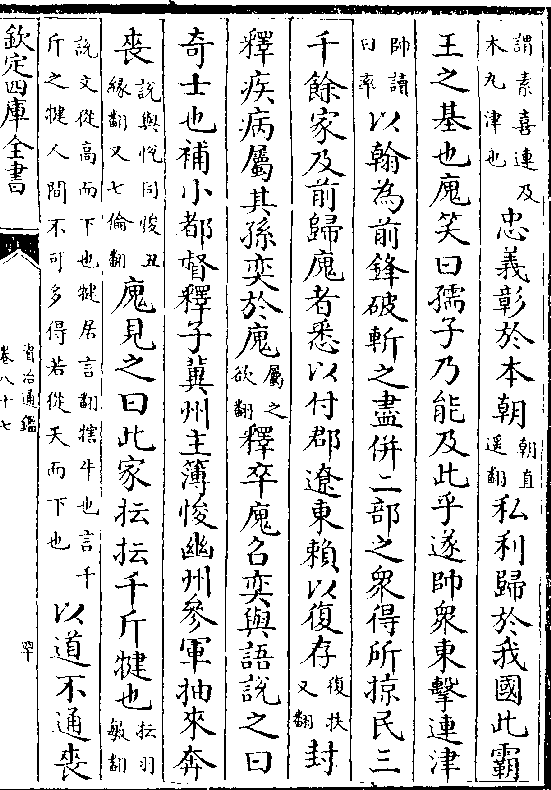 謂素喜連及木丸津也忠義彰於本朝朝直遥翻私利歸於我國此霸
王之基也廆笑曰孺子乃能及此乎遂帥衆東擊連津
帥讀曰率以翰為前鋒破斬之盡併二部之衆得所掠民三
千餘家及前歸廆者悉以付郡遼東賴以復存復扶又翻封
釋疾病屬其孫奕於廆屬之欲翻釋卒廆召奕與語說之曰
奇士也補小都督釋子冀州主簿悛幽州參軍抽來奔
喪說與悅同悛丑緣翻又七倫翻廆見之曰此家抎抎千斤犍也抎羽敏翻
說文從高而下也犍居言翻犗牛也言千斤之犍人間不可多得若從天而下也以道不通喪
欽定四庫全書
資治通鑑
卷八十七